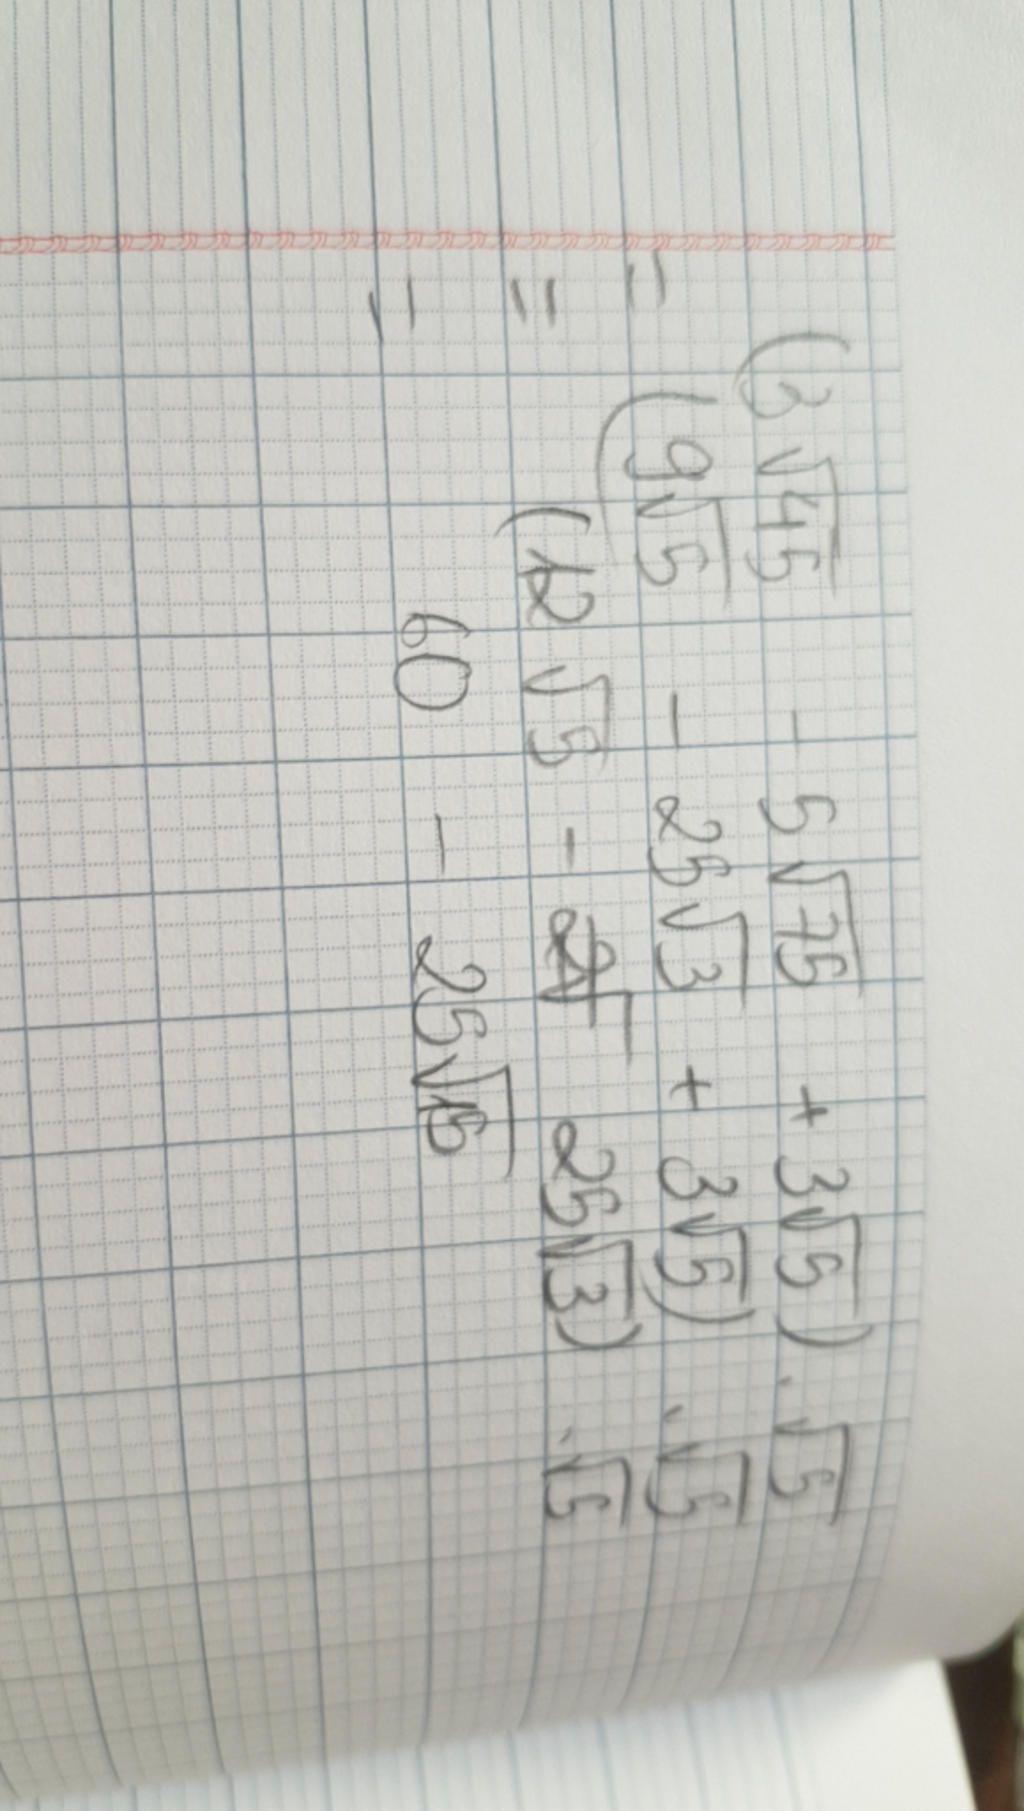 (3√45 - 5√75 + 3√5) . √5
= (9√5 - 25√3 + 3√5) . √5
= (12√5 - 25√3) . √5
= 60 - 25√15